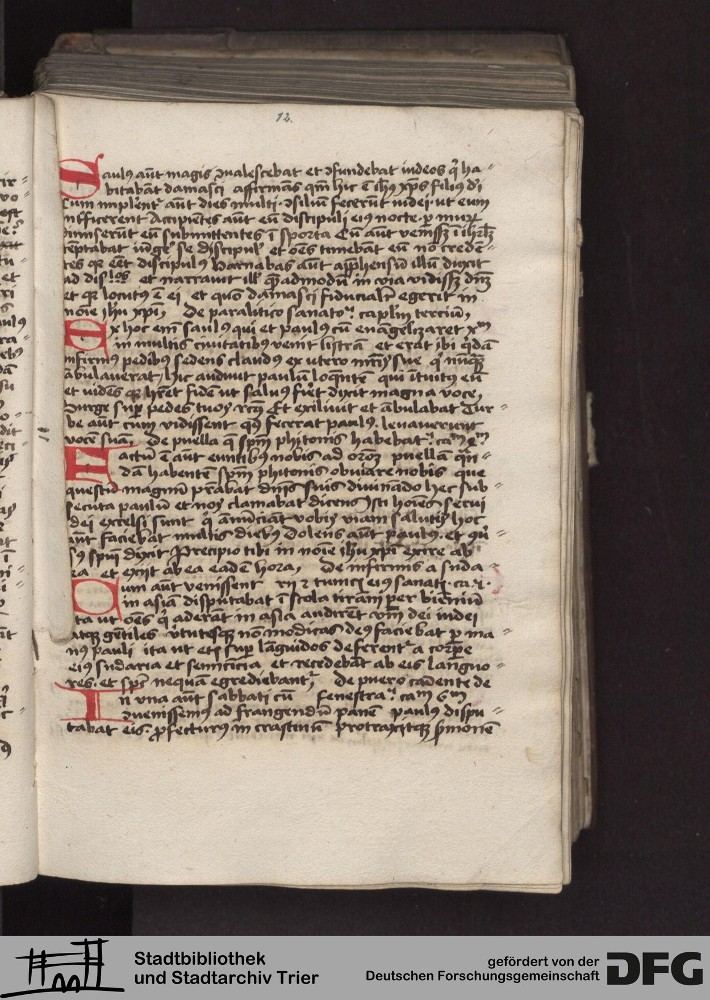 12.
Saulꝰ aūt magis ꝯualescebat et ꝯfundebat iudeos q̇ ha⸗
bitabāt damasci affirmās qm̄ hic ē ihūs xp̄s filiꝰ dī
Cum implerēt᷑ aūt dies multi ꝯsiliū fecerūt iudei ut eum
intficerent Accipiētes aūt eū discipuli eiꝰ nocte ꝑ murū
dimiserūt eū submittentes ī sporta Cū aūt venissꝫ ī ihrlꝫ
teptabat iūgē se discipul᷑ et oēs timebāt eū nō credē⸗
tes qꝫ eēt discipulꝰ Barnabas aūt apphēnsū illū duxit
ad aplos et narravit ill᷑ quēadmodū in via vidissꝫ dn̄ꝫ
et qꝫ locutꝰ ē ei et quō damasci fiducialr̄ egerit in
noīe ihū xp̄i, de paralitico sanato᷑ caplm̄ terciū,
Ex hoc em̄ saulꝰ qui et paulꝰ cū euāgelizaret xm̄
in multis ciuitatibꝰ veīt listrā et erat ibi q̇dā
infirmꝰ pedibꝰ sedens claudꝰ ex utero mr̄is sue q̇ nūqꝫ
ābulauerat, hic audiuit paulū loq̄nte qui ītuitꝰ eū
et vidēs qꝫ hr̄et fidē ut saluꝰ fiēt dixit magna voce,
Surge suꝑ pedes tuos rectꝰ Et exiliuit et ābulabat Tur⸗
be aūt cum vidissent qd̄ fecerat paulꝰ leuauerunt
vocē suā, de puella q̄ spm̄ phitonis habebat᷑ caᵐ 4ᵐ
Factū ē aūt euntibꝰ nobis ad oroēꝫ puellā qn̄⸗
dā habentē spm̄ phitonis obuiare nobis que
questū magnū p̄stabat dn̄is suis diuinādo hec sub⸗
secuta paulū et nos clamabat dicens Isti hoīes serui
dei excelsi sunt q̇ ānūciāt vobis viam salutis hoc
aūt faciebat multis diebꝰ Dolens aūt paulꝰ et cō
sꝰ spui dixit Precipio tibi in noīe ihū xp̄i exire ab
ea et exiit ab ea eadē hora, de infirmis a suda⸗
Cum aūt venissent rijs ⁊ tunicis eiꝰ sanati ca. v.
in asiā disputabat ī scola tirāni per bienniū
ita ut oēs q̇ aderāt in asia audirēt v̄bū dei iudei
atqꝫ gētiles v̄tutesqꝫ nō modicas deꝰ faciebat ꝑ ma⸗
nꝰ pauli ita ut etī suꝑ lāguidos deferent᷑ a corꝑe
eiꝰ sudaria et semīcīcia et recedebāt ab eis languo⸗
res et spꝰ nequā egrediebant᷑, de puero cadente de
In una aūt sabbati cū fenestra᷑ caᵐ 6ᵐ
ꝯuenissemꝰ ad frangendū panē paulꝰ dispu⸗
tabat eis ꝓfecturꝰ in crastinū protraxitqꝫ sermonē
Stadtbibliothek
und Stadtarchiv Trier
gefördert von der
Deutschen Forschungsgemeinschaft
DFG